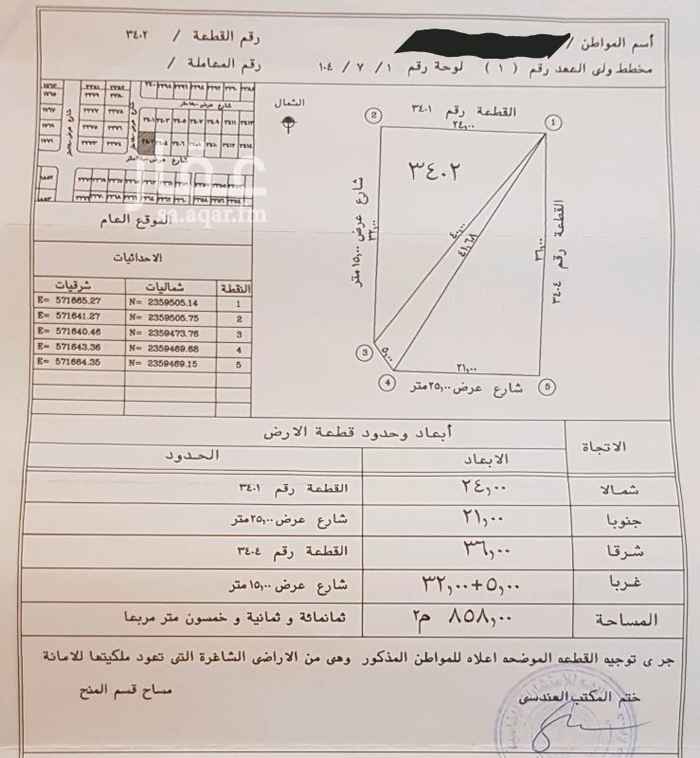 أسم المواطن /
رقم القطعة / ٣٤٠٢
مخطط ولى العهد رقم ( ١ ) لوحة رقم ١ / ٧ / ١٠٤
رقم المعاملة /
الشمال
القطعة رقم ٣٤٠١
٢٤,٠٠
٣٤٠٢
شارع عرض ١٥,٠٠ متر
٣٢,٠٠
٤٠,٠٠
٤١,٦٨
٣٦,٠٠
القطعة رقم ٣٤٠٤
٥,٠٠
٢١,٠٠
شارع عرض ٢٥,٠٠متر
1
2
3
4
5
عقار
sa.aqar.fm
الموقع العام
الاحداثيات
النقطة شماليات شرقيات
1 N= 2359505.14 E= 571665.27
2 N= 2359505.75 E= 571641.27
3 N= 2359473.76 E= 571640.46
4 N= 2359469.68 E= 571643.36
5 N= 2359469.15 E= 571664.35
أبعاد وحدود قطعة الارض
الاتجاة الابعاد الحدود
شمالا ٢٤,٠٠ القطعة رقم ٣٤٠١
جنوبا ٢١,٠٠ شارع عرض ٢٥,٠٠متر
شرقا ٣٦,٠٠ القطعة رقم ٣٤٠٤
غربا ٣٢,٠٠+٥,٠٠ شارع عرض ١٥,٠٠متر
المساحة ٨٥٨,٠٠ م٢ ثمانمائة و ثمانية و خمسون متر مربعا
جرى توجيه القطعه الموضحه اعلاه للمواطن المذكور وهى من الاراضى الشاغرة التى تعود ملكيتها للامانة
ختم المكتب الهندسى
مساح قسم المنح